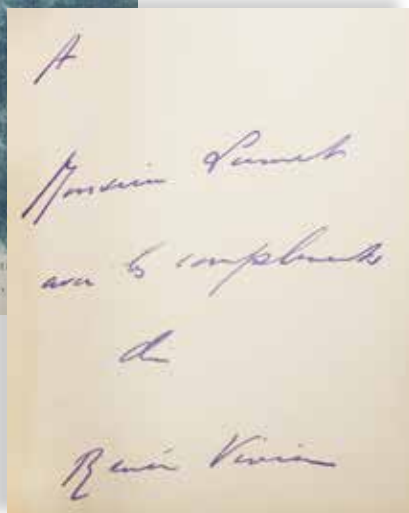 A
Monsieur
avec les compliments
de
Renée Vivien